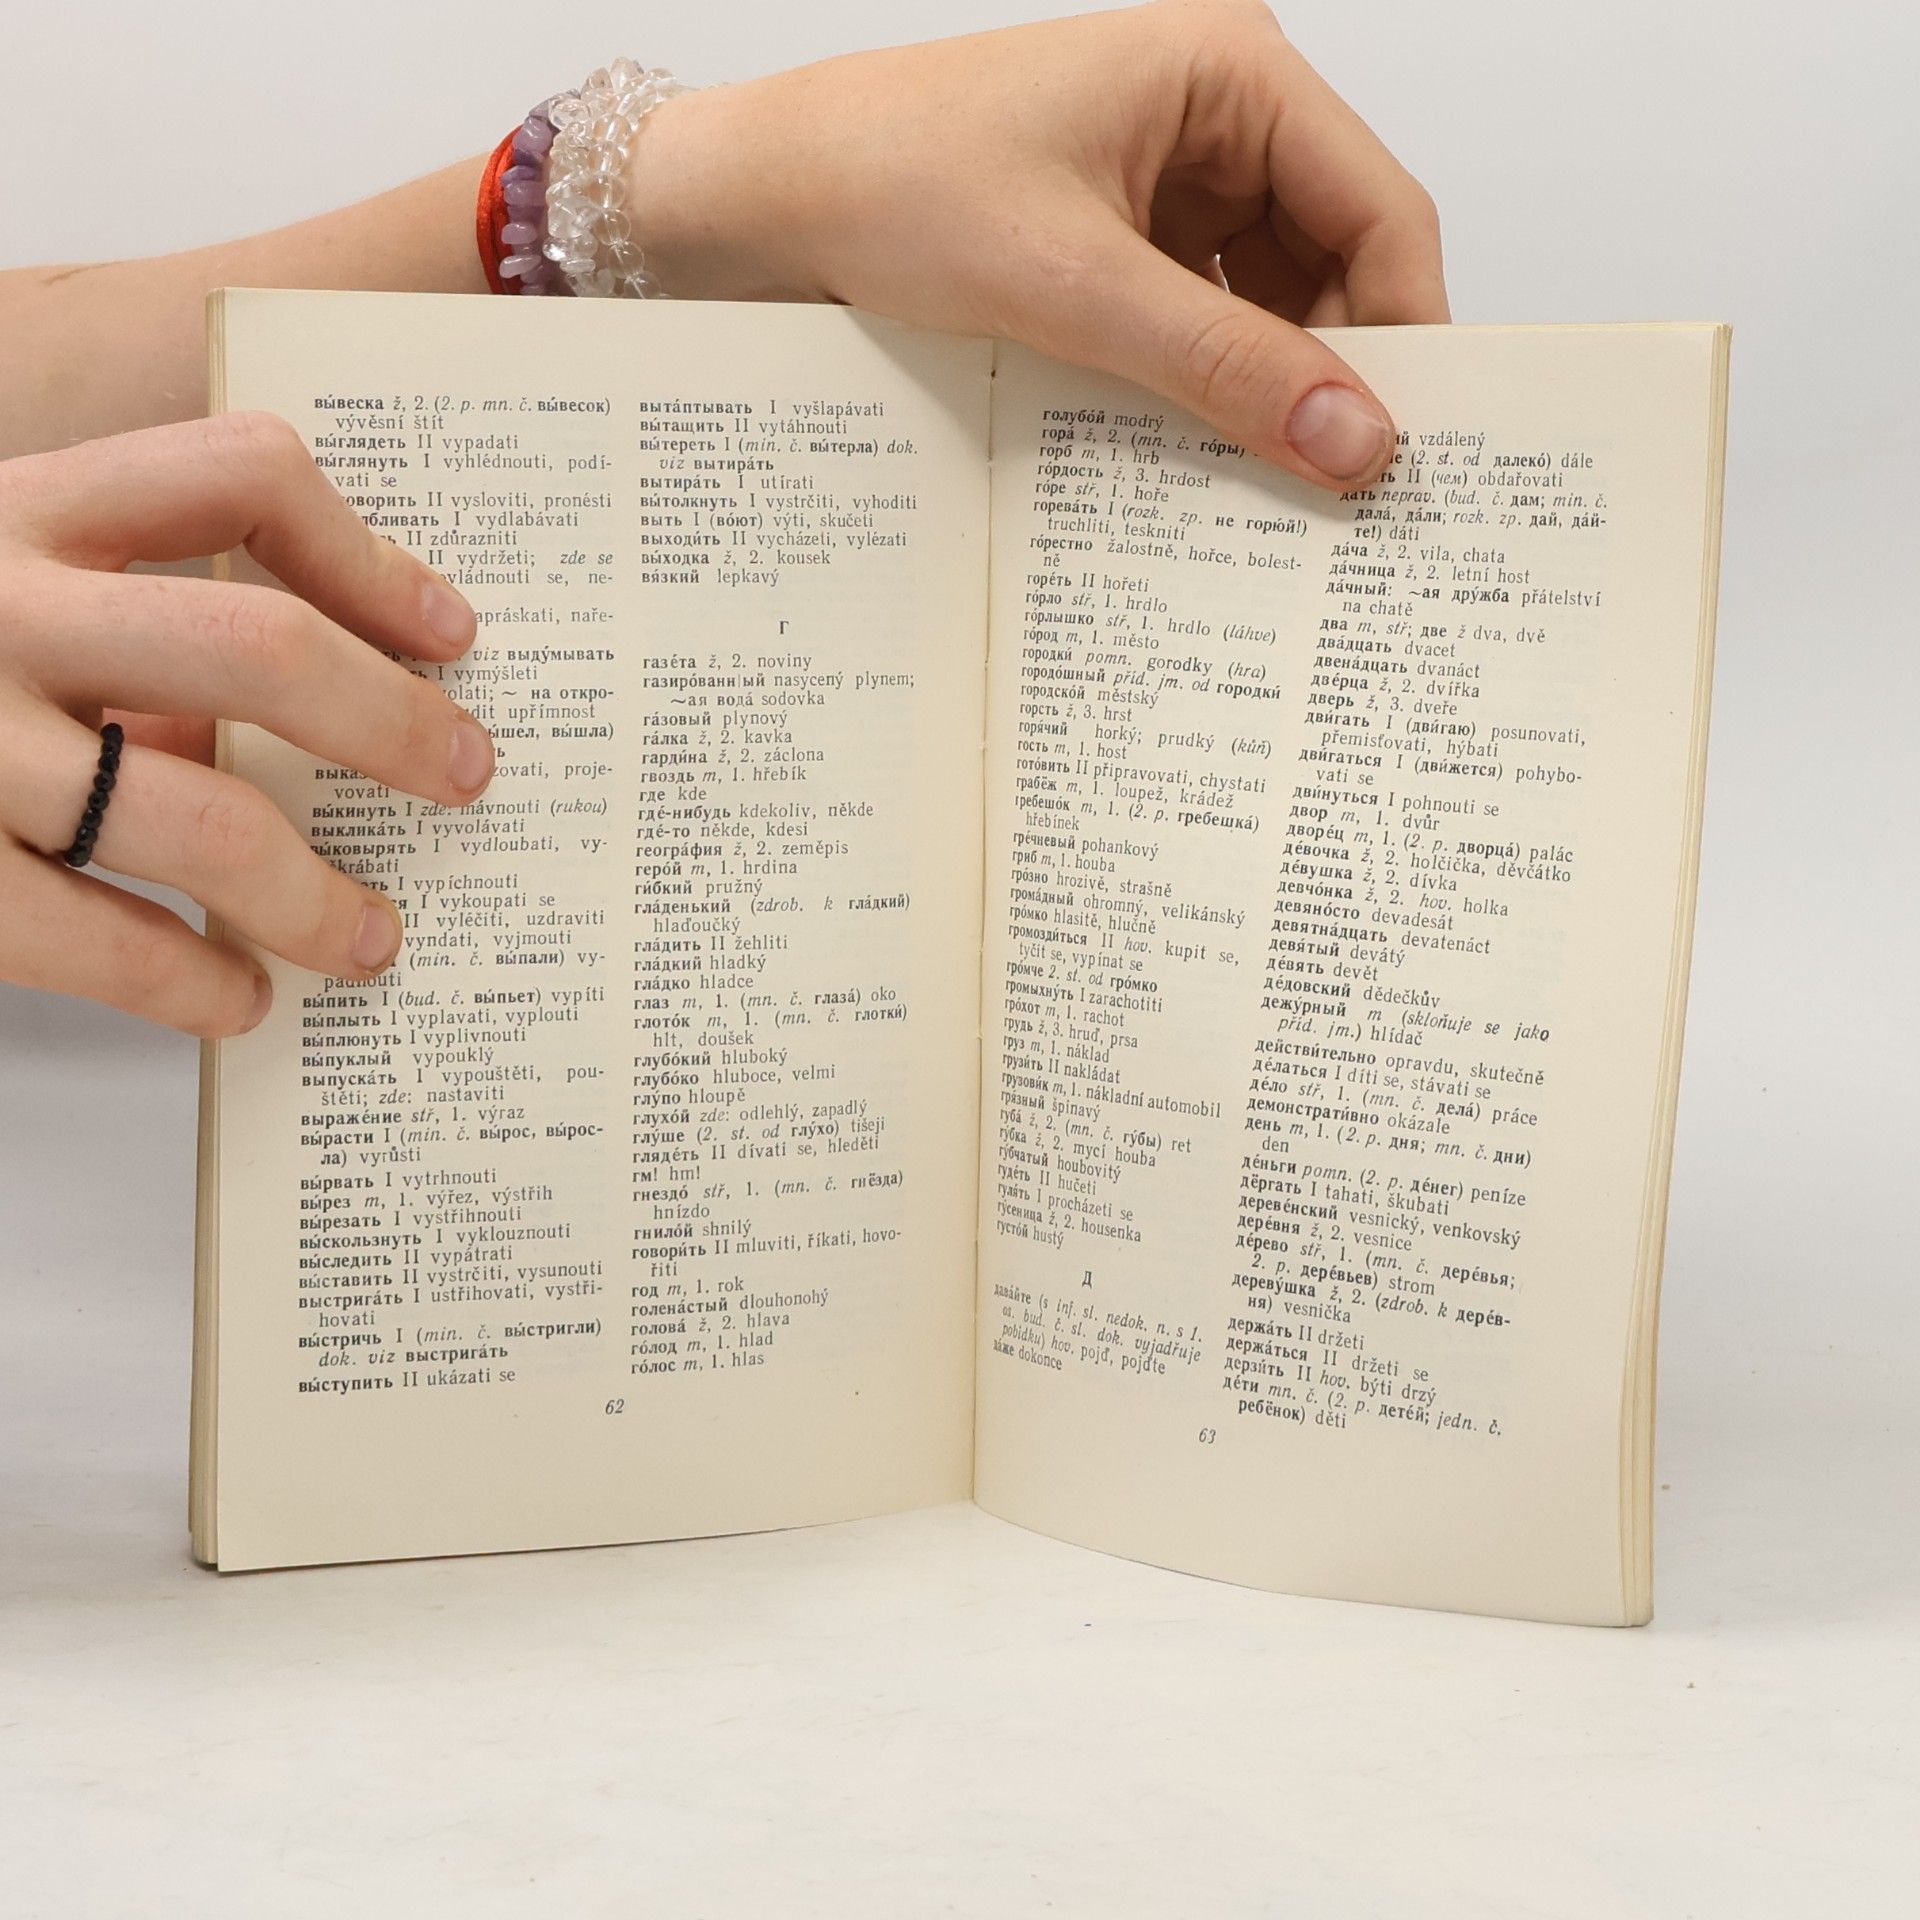 вы́веска ž, 2. (2. p. mn. č. вы́весок)
vývěsní štít
вы́глядеть II vypadati
вы́глянуть I vyhlédnouti, podí-
vati se
оворить II vysloviti, pronésti
бливать I vydlabávati
II zdůrazniti
II vydržeti; zde se
ovládnouti se, ne-
apráskati, naře-
viz выду́мывать
I vymýšleti
volati; ~ на откро-
dit upřímnost
ышел, вы́шла)
zovati, proje-
vovati
вы́кинуть I zde: mávnouti (rukou)
выклика́ть I vyvolávati
вы́ковырять I vydloubati, vy-
škrábati
ть I vypíchnouti
ся I vykoupati se
II vyléčiti, uzdraviti
vyndati, vyjmouti
(min. č. вы́пали) vy-
padnouti
вы́пить I (bud. č. вы́пьет) vypíti
вы́плыть I vyplavati, vyplouti
вы́плюнуть I vyplivnouti
вы́пуклый vypouklý
выпуска́ть I vypouštěti, pou-
štěti; zde: nastaviti
выраже́ние stř, 1. výraz
вы́расти I (min. č. вы́рос, вы́рос-
ла) vyrůsti
вы́рвать I vytrhnouti
вы́рез m, 1. výřez, výstřih
вы́резать I vystřihnouti
вы́скользнуть I vyklouznouti
вы́следить II vypátrati
вы́ставить II vystrčiti, vysunouti
выстрига́ть I ustřihovati, vystři-
hovati
вы́стричь I (min. č. вы́стригли)
dok. viz выстрига́ть
вы́ступить II ukázati se
вытáптывать I vyšlapávati
вы́тащить II vytáhnouti
вы́тереть I (min. č. вы́терла) dok.
viz вытира́ть
вытира́ть I utírati
вы́толкнуть I vystrčiti, vyhoditi
выть I (во́ют) výti, skučeti
выходи́ть II vycházeti, vylézati
вы́ходка ž, 2. kousek
вя́зкий lepkavý
Г
газе́та ž, 2. noviny
газиро́ванн|ый nasycený plynem;
~ая вода́ sodovka
га́зовый plynový
га́лка ž, 2. kavka
гарди́на ž, 2. záclona
гвоздь m, 1. hřebík
где kde
где́-нибудь kdekoliv, někde
где́-то někde, kdesi
геогра́фия ž, 2. zeměpis
геро́й m, 1. hrdina
ги́бкий pružný
гла́денький (zdrob. k гла́дкий)
hlaďoučký
гла́дить II žehliti
гла́дкий hladký
гла́дко hladce
глаз m, 1. (mn. č. глаза́) oko
глото́к m, 1. (mn. č. глотки́)
hlt, doušek
глубо́кий hluboký
глубо́ко hluboce, velmi
глу́по hloupě
глухо́й zde: odlehlý, zapadlý
глу́ше (2. st. od глу́хо) tišeji
гляде́ть II dívati se, hleděti
гм! hm!
гнездо́ stř, 1. (mn. č. гнёзда)
hnízdo
гнило́й shnilý
говори́ть II mluviti, říkati, hovo-
řiti
год m, 1. rok
голена́стый dlouhonohý
голова́ ž, 2. hlava
го́лод m, 1. hlad
го́лос m, 1. hlas
62
голубо́й modrý
гора́ ž, 2. (mn. č. го́ры)
горб m, 1. hrb
го́рдость ž, 3. hrdost
го́ре stř, 1. hoře
горева́ть I (rozk. zp. не горю́й!)
truchliti, teskniti
го́рестно žalostně, hořce, bolest-
ně
горе́ть II hořeti
го́рло stř, 1. hrdlo
го́рлышко stř, 1. hrdlo (láhve)
го́род m, 1. město
городки́ pomn. gorodky (hra)
городо́шный příd. jm. od городки́
городско́й městský
горсть ž, 3. hrst
горя́чий horký; prudký (kůň)
гость m, 1. host
гото́вить II připravovati, chystati
грабёж m, 1. loupež, krádež
гребешо́к m, 1. (2. p. гребешка́)
hřebínek
гре́чневый pohankový
гриб m, 1. houba
гро́зно hrozivě, strašně
грома́дный ohromný, velikánský
гро́мко hlasitě, hlučně
громозди́ться II hov. kupit se,
tyčit se, vypínat se
гро́мче 2. st. od гро́мко
громыхну́ть I zarachotiti
гро́хот m, 1. rachot
грудь ž, 3. hruď, prsa
груз m, 1. náklad
грузи́ть II nakládat
грузови́к m, 1. nákladní automobil
гря́зный špinavý
губа́ ž, 2. (mn. č. гу́бы) ret
гу́бка ž, 2. mycí houba
гу́бчатый houbovitý
гуде́ть II hučeti
гуля́ть I procházeti se
гу́сеница ž, 2. housenka
густо́й hustý
Д
дава́йте (s inf. sl. nedok. n. s 1.
os. bud. č. sl. dok. vyjadřuje
pobídku) hov. pojď, pojďte
да́же dokonce
ий vzdálený
(2. st. od далеко́) dále
ть II (чем) obdařovati
дать neprav. (bud. č. дам; min. č.
дала́, да́ли; rozk. zp. дай, да́й-
те!) dáti
да́ча ž, 2. vila, chata
да́чница ž, 2. letní host
да́чный: ~ая дру́жба přátelství
na chatě
два m, stř; две ž dva, dvě
два́дцать dvacet
двена́дцать dvanáct
две́рца ž, 2. dvířka
дверь ž, 3. dveře
дви́гать I (дви́гаю) posunovati,
přemisťovati, hýbati
дви́гаться I (дви́жется) pohybo-
vati se
дви́нуться I pohnouti se
двор m, 1. dvůr
дворе́ц m, 1. (2. p. дворца́) palác
де́вочка ž, 2. holčička, děvčátko
де́вушка ž, 2. dívka
девчо́нка ž, 2. hov. holka
девяно́сто devadesát
девятна́дцать devatenáct
девя́тый devátý
де́вять devět
де́довский dědečkův
дежу́рный m (skloňuje se jako
příd. jm.) hlídač
действи́тельно opravdu, skutečně
де́латься I díti se, stávati se
де́ло stř, 1. (mn. č. дела́) práce
демонстрати́вно okázale
день m, 1. (2. p. дня; mn. č. дни)
den
де́ньги pomn. (2. p. де́нег) peníze
дёргать I tahati, škubati
дереве́нский vesnický, venkovský
дере́вня ž, 2. vesnice
де́рево stř, 1. (mn. č. дере́вья;
2. p. дере́вьев) strom
дереву́шка ž, 2. (zdrob. k дере́в-
ня) vesnička
держа́ть II držeti
держа́ться II držeti se
дерзи́ть II hov. býti drzý
де́ти mn. č. (2. p. дете́й; jedn. č.
ребёнок) děti
63